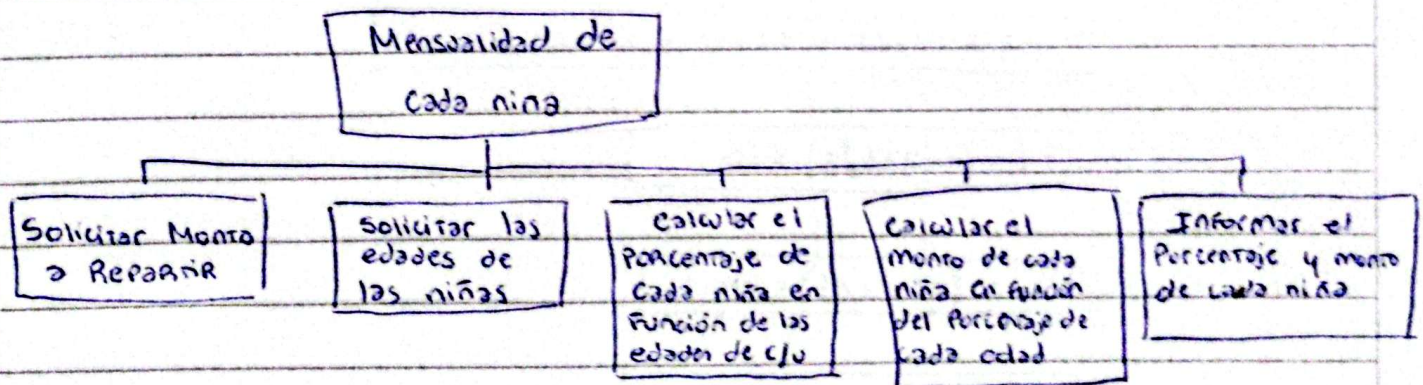 Mensualidad de
cada niña
Solicitar Monto
a Repartir
Solicitar las
edades de
las niñas
Calcular el
Porcentaje de
cada niña en
Función de las
edades de c/u
Calcular el
monto de cada
niña en función
del Porcentaje de
cada edad
Informar el
Porcentaje y monto
de cada niña